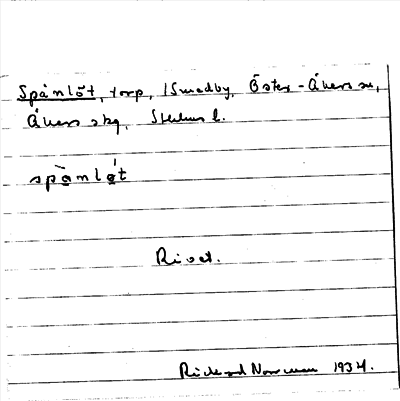 Spånlöt, torp, /Smedby, Öster-Åkers sn,
Åkers skg, Sthlms l.
spånlöt
Rivet.
Rickard Norrman 1934.